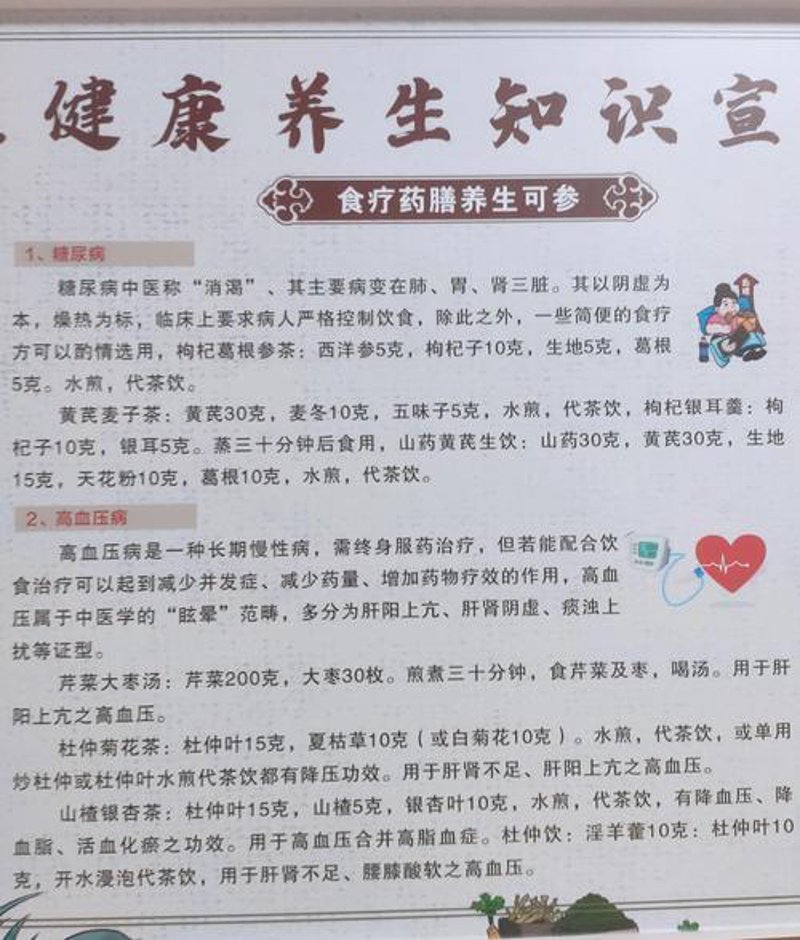 健康养生知识宣
食疗药膳养生可参
1、糖尿病
糖尿病中医称“消渴”、其主要病变在肺、胃、肾三脏。其以阴虚为
本，燥热为标，临床上要求病人严格控制饮食，除此之外，一些简便的食疗
方可以酌情选用，枸杞葛根参茶：西洋参5克，枸杞子10克，生地5克，葛根
5克。水煎，代茶饮。
黄芪麦子茶：黄芪30克，麦冬10克，五味子5克，水煎，代茶饮，枸杞银耳羹：枸
杞子10克，银耳5克。蒸三十分钟后食用，山药黄芪生饮：山药30克，黄芪30克，生地
15克，天花粉10克，葛根10克，水煎，代茶饮。
2、高血压病
高血压病是一种长期慢性病，需终身服药治疗，但若能配合饮
食治疗可以起到减少并发症、减少药量、增加药物疗效的作用，高血
压属于中医学的“眩晕”范畴，多分为肝阳上亢、肝肾阴虚、痰浊上
扰等证型。
芹菜大枣汤：芹菜200克，大枣30枚。煎煮三十分钟，食芹菜及枣，喝汤。用于肝
阳上亢之高血压。
杜仲菊花茶：杜仲叶15克，夏枯草10克（或白菊花10克）。水煎，代茶饮，或单用
炒杜仲或杜仲叶水煎代茶饮都有降压功效。用于肝肾不足、肝阳上亢之高血压。
山楂银杏茶：杜仲叶15克，山楂5克，银杏叶10克，水煎，代茶饮，有降血压、降
血脂、活血化瘀之功效。用于高血压合并高脂血症。杜仲饮：淫羊藿10克：杜仲叶10
克，开水漫泡代茶饮，用于肝肾不足、腰膝酸软之高血压。